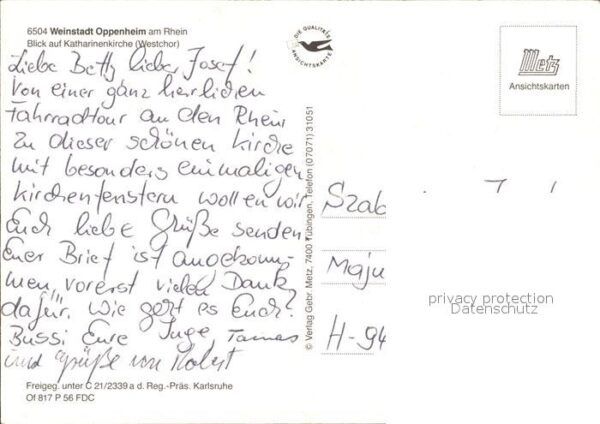 6504 Weinstadt Oppenheim am Rhein
Blick auf Katharinenkirche (Westchor)
Liebe Betti lieber Josef!
Von einer ganz herrlichen
Fahrradtour an den Rhein
zu dieser schönen Kirche
mit besonders einmaligen
Kirchenfenstern wollen wir
Euch liebe Grüße senden.
Euer Brief ist angekom-
men, vorerst vielen Dank
dafür. Wie geht es Euch?
Bussi Eure Inge Tamas
und Grüße von Robert
Freigeg. unter C 21/2339 a d. Reg.-Präs. Karlsruhe
Of 817 P 56 FDC
DIE QUALITÄTS
ANSICHTSKARTE
© Verlag Gebr. Metz, 7400 Tübingen, Telefon (07071) 31051
Metz
Ansichtskarten
Szab
Maju
H-94
privacy protection
Datenschutz